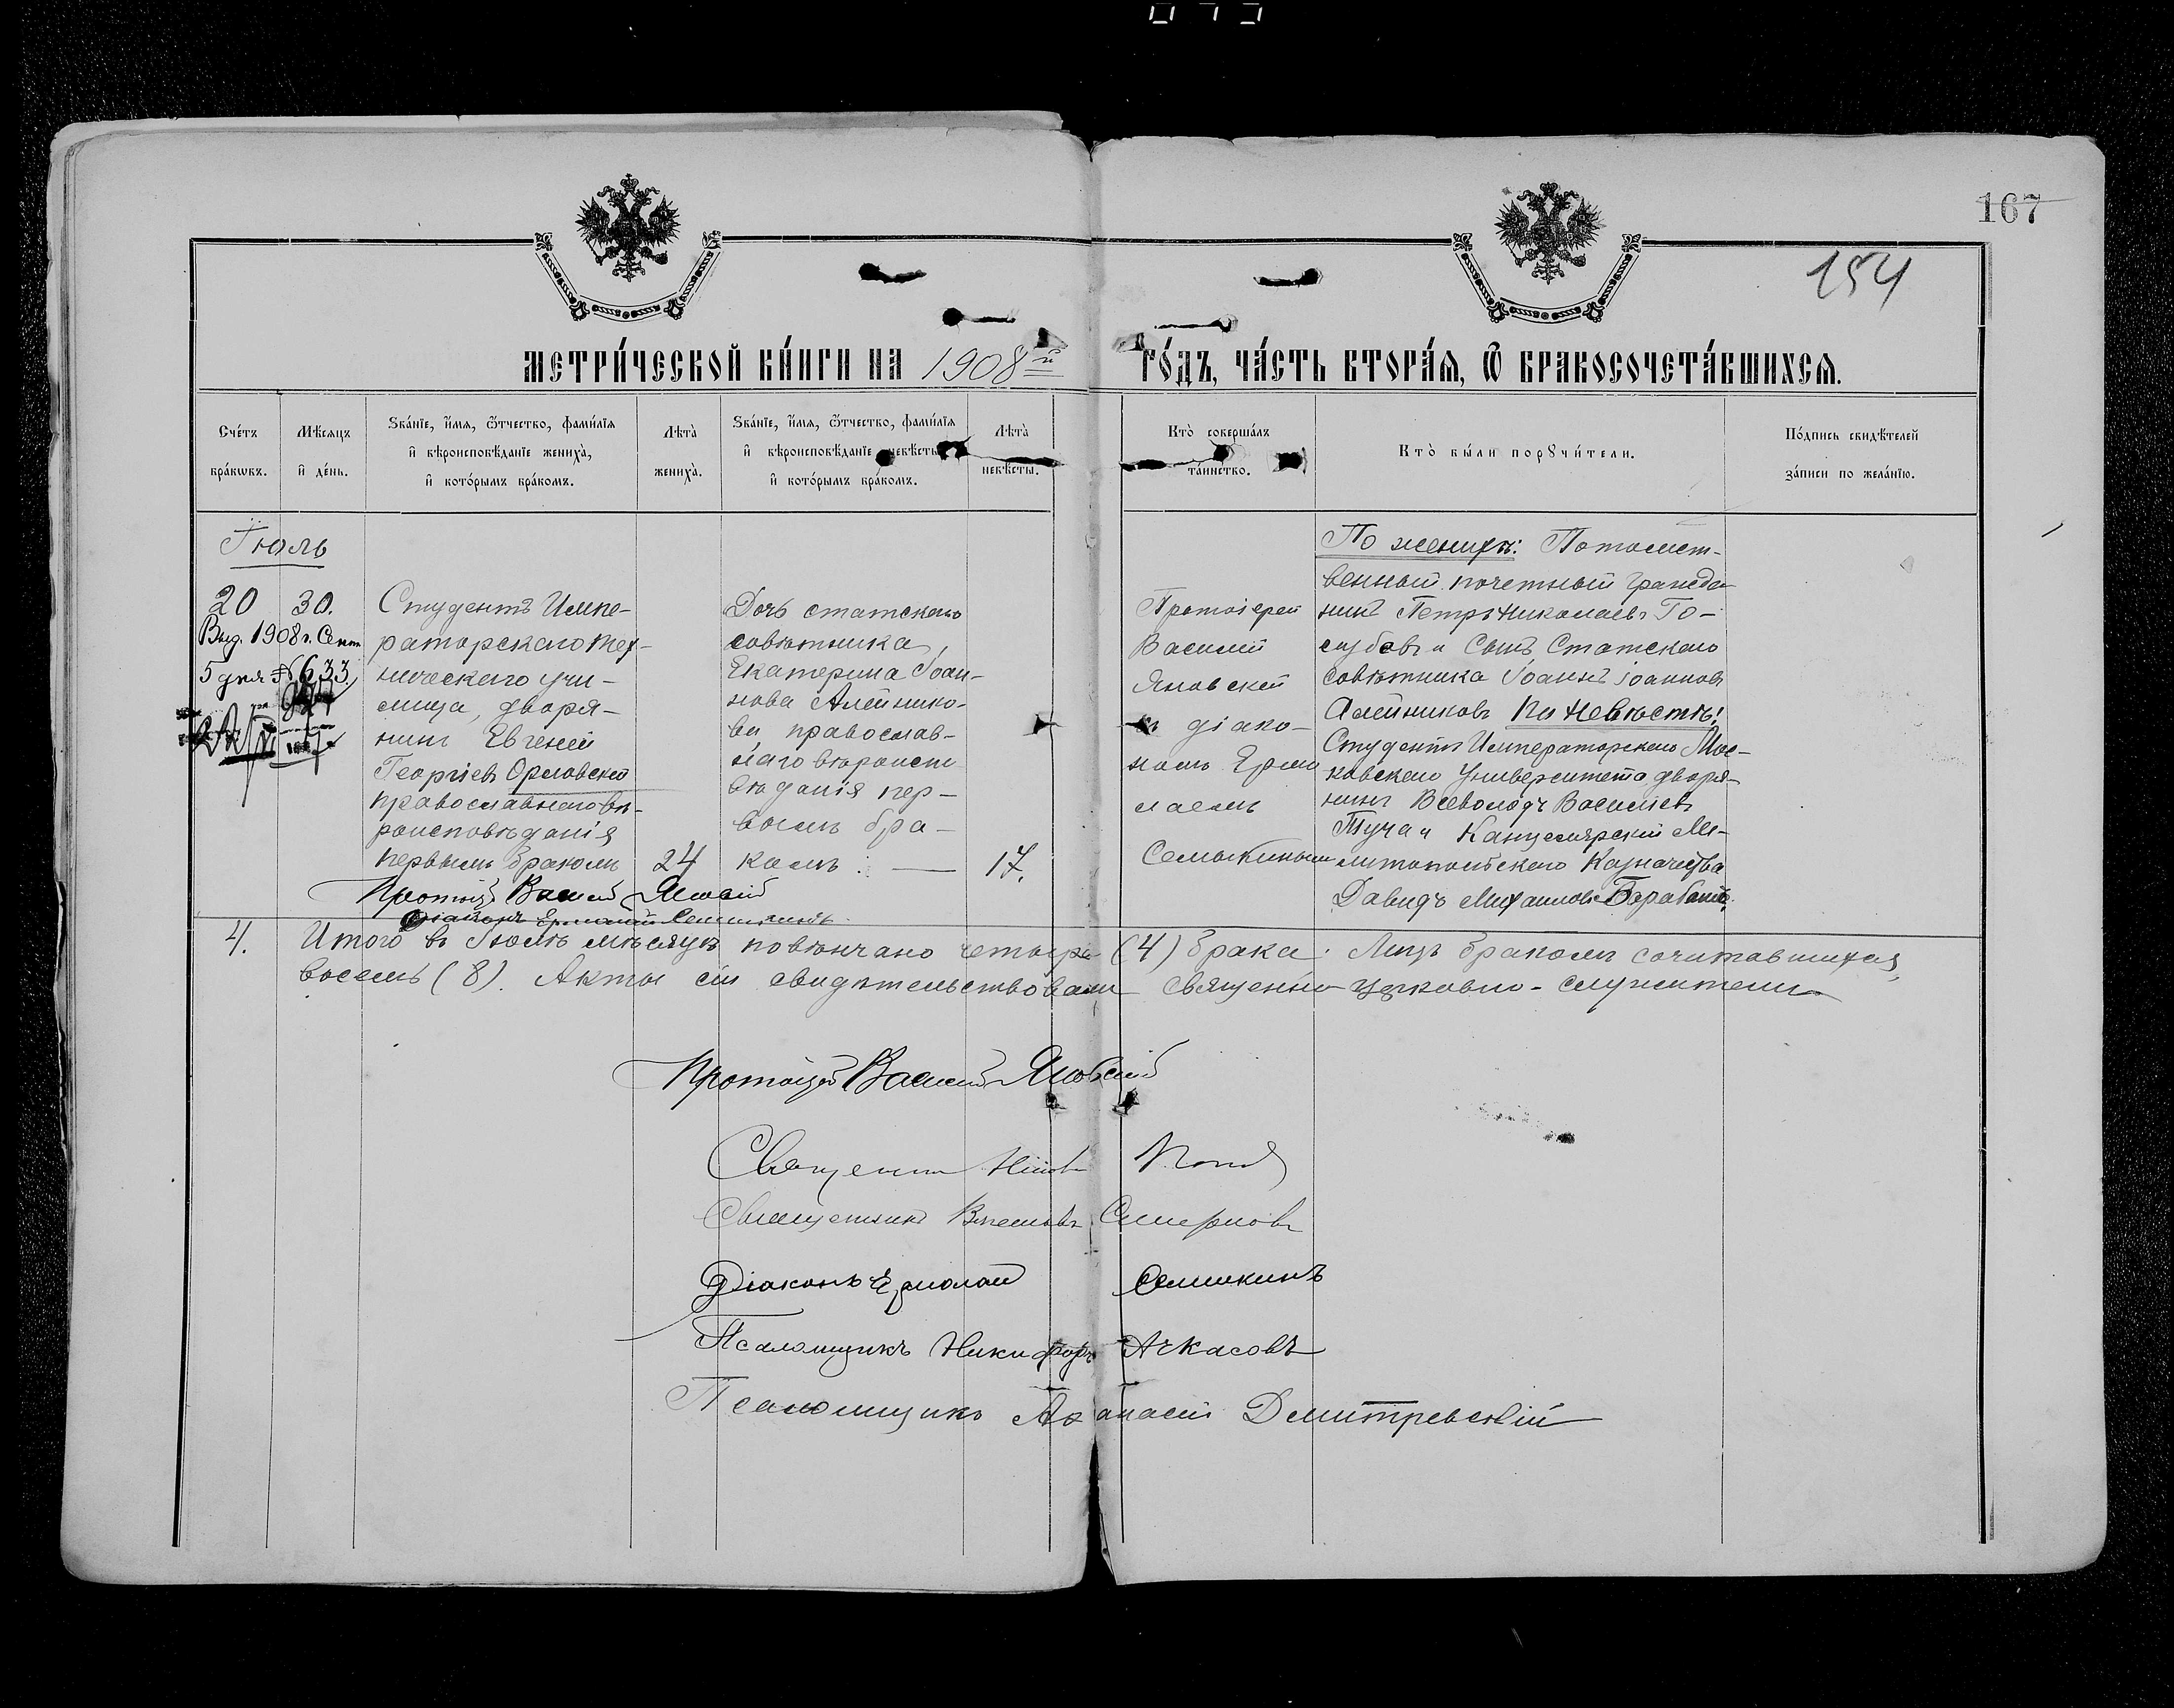 167
154
МЕТРИ́ЧЕСКОЙ КНИ́ГИ НА 1908й ГО́ДЪ, ЧА́СТЬ ВТОРА́Я, Ѽ БРАКОСОЧЕТА́ВШИХСЯ.
Сче́тъ бра́кѡвъ.
Мѣ́сяцъ и де́нь.
Ѕва́нїе, и́мя, ѻ́тчество, фами́лїя и вѣроисповѣ́данїе жениха̀, и кото́рымъ бра́комъ.
Лѣта̀ жениха̀.
Ѕва́нїе, и́мя, ѻ́тчество, фами́лїя и вѣроисповѣ́данїе невѣ́сты, и кото́рымъ бра́комъ.
Лѣта̀ невѣ́сты.
Кто̀ соверша́лъ та́инство.
Кто̀ бы́ли порꙋчи́тели.
По́дпись свидѣ́телей за́писи по жела́нїю.
Іюль
20
30.
Выд. 1908 г. Сент
5 дня № 633
Студентъ Импе-
раторскаго тех-
ническаго учи-
лища, дворя-
нинъ Евгеній
Георгіевъ Орловскій
православнаго вѣ-
роисповѣданія
первымъ бракомъ
24
Дочь статскаго
совѣтника
Екатерина Іоан-
нова Алейнико-
ва православ-
наго вѣроиспо
вѣданія пер-
вымъ бра-
комъ
17.
Протоіерей
Василій
Яновскій
съ діако-
номъ Ермо
лаемъ
Семыкинымъ
По женихѣ: Потомст-
венный почетный гражда
нинъ Петръ Николаевъ Го-
лубовъ и Сынъ Статскаго
совѣтника Іоаннъ Іоанновъ
Алейниковъ По Невѣстѣ:
Студентъ Императорскаго Мос-
ковскаго Университета дворя-
нинъ Всеволодъ Васильевъ
Туча и Канцелярскій Ме-
литопольскаго Казначейства
Давидъ Михаиловъ Барабашъ.
Протоіерей Василій Яновскій
Діаконъ Ермолай Семыкинъ
4. Итого въ Іюлѣ мѣсяцѣ повѣнчано четыре (4) брака. Лицъ бракомъ сочитавшихся
восемь (8). Акты сіи свидѣтельствовали священно-церковно-служители
Протоіерей Василій Яновскій
Священникъ
Священникъ Смирновъ
Діаконъ Ермолай Семыкинъ
Псаломщикъ Никифоръ Ачкасовъ
Псаломщикъ Аѳанасій Дмитревскій